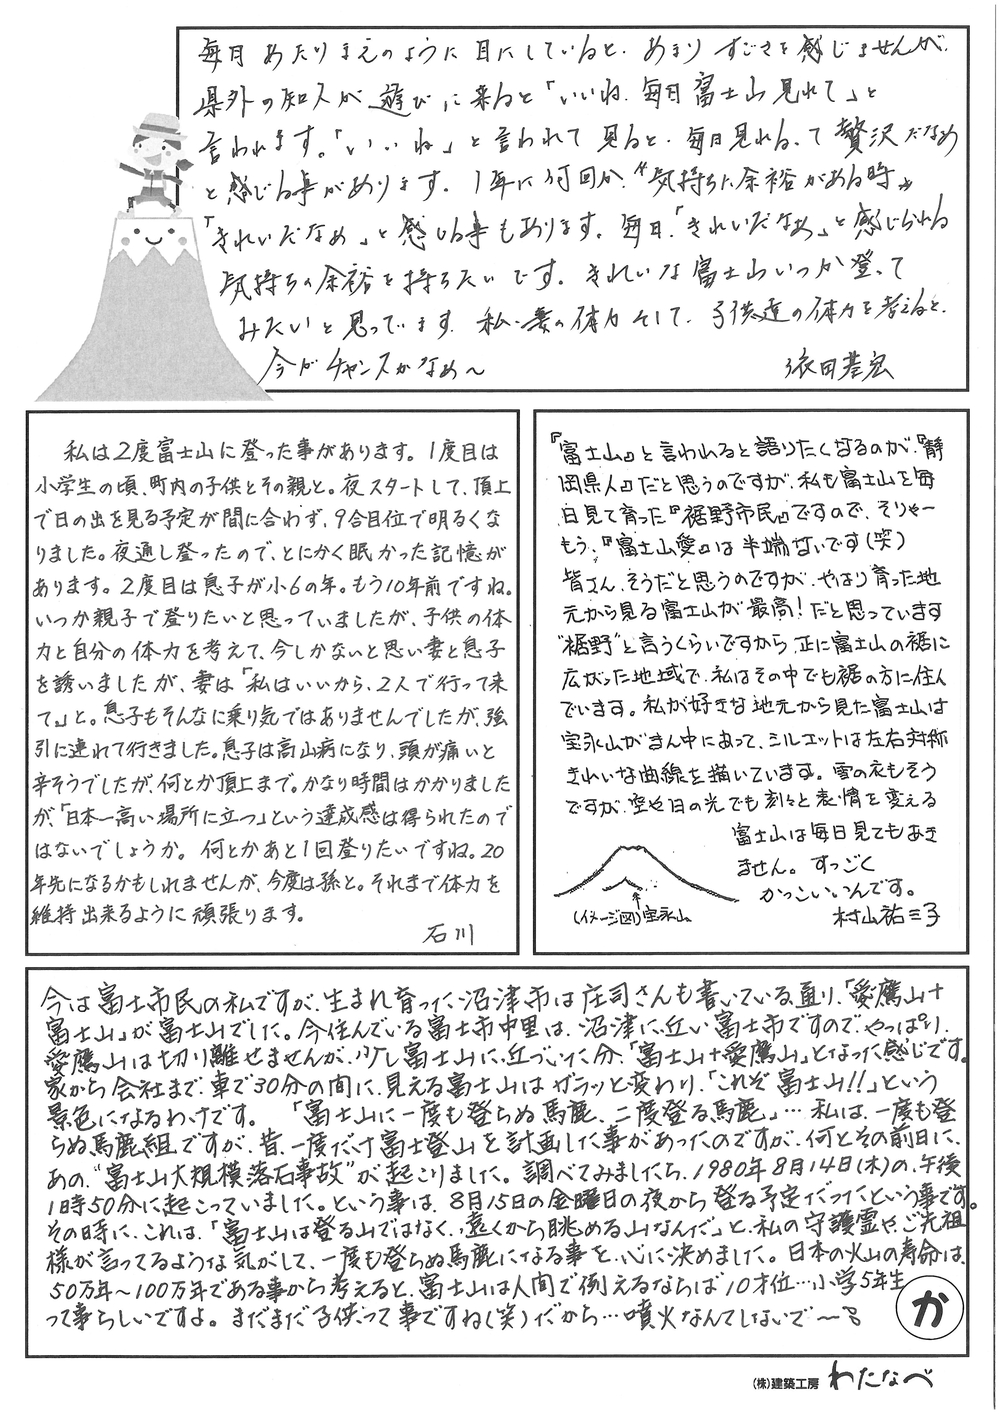 毎日 あたりまえのように 目にしていると、あまり すごさを感じませんが、
県外の知人が 遊びに来ると「いいね、毎日 富士山見れて」と
言われます。「いいね」と言われて 見ると、毎日見れるって 贅沢だなぁ
と感じる事があります。 1年に何回か、“気持ちに余裕がある時”
「きれいだなぁ」と感じる事もあります。毎日、「きれいだなぁ」と感じられる
気持ちの余裕を持ちたいです。きれいな富士山いつか登って
みたいと思っています。私、妻の体力そして、子供達の体力を考えると、
今がチャンスかなぁ〜
依田基宏
私は2度富士山に登った事があります。1度目は
小学生の頃、町内の子供とその親と。夜スタートして、頂上
で日の出を見る予定が間に合わず、9合目位で明るくな
りました。夜通し登ったので、とにかく眠かった記憶が
あります。2度目は息子が小6の年。もう10年前ですね。
いつか親子で登りたいと思っていましたが、子供の体
力と自分の体力を考えて、今しかないと思い妻と息子
を誘いましたが、妻は「私はいいから、2人で行って来
て。」と。息子もそんなに乗り気ではありませんでしたが、強
引に連れて行きました。息子は高山病になり、頭が痛いと
辛そうでしたが、何とか頂上まで。かなり時間はかかりました
が、「日本一高い場所に立つ」という達成感は得られたので
はないでしょうか。何とかあと1回登りたいですね。20
年先になるかもしれませんが、今度は孫と。それまで体力を
維持出来るように頑張ります。
石川
『富士山』と言われると語りたくなるのが、『静
岡県人』だと思うのですが、私も富士山を毎
日見て育った『裾野市民』ですので、そりゃー
もう、『富士山愛』は半端ないです(笑)
皆さん、そうだと思うのですが、やはり育った地
元から見る富士山が最高！だと思っています
“裾野”と言うくらいですから、正に富士山の裾に
広がった地域で、私はその中でも裾の方に住ん
でいます。私が好きな地元から見た富士山は
宝永山がまん中にあって、シルエットは左右対称
きれいな曲線を描いています。雪の衣もそう
ですが、空や日の光でも刻々と表情を変える
富士山は毎日見てもあき
ません。すっごく
かっこいいんです。
(イメージ図)宝永山
村山祐三子
今は富士市民の私ですが、生まれ育った沼津市は庄司さんも書いている通り、「愛鷹山+
富士山」が富士山でした。今住んでいる富士市中里は、沼津に近い富士市ですので、やっぱり、
愛鷹山は切り離せませんが、少し富士山に近づいた分、「富士山+愛鷹山」となった感じです。
家から会社まで、車で30分の間に、見える富士山はガラッと変わり、「これぞ富士山!!」という
景色になるわけです。 「富士山に一度も登らぬ馬鹿、二度登る馬鹿」…私は、一度も登
らぬ馬鹿組ですが、昔、一度だけ富士登山を計画した事があったのですが、何とその前日に、
あの“富士山大規模落石事故”が起こりました。調べてみましたら、1980年8月14日(木)の、午後
1時50分に起こっていました。という事は、8月15日の金曜日の夜から登る予定だったという事です。
その時に、これは、「富士山は登る山ではなく、遠くから眺める山なんだ」と、私の守護霊や、ご先祖
様が言ってるような気がして、一度も登らぬ馬鹿になる事を、心に決めました。日本の火山の寿命は、
50万年〜100万年である事から考えると、富士山は人間で例えるならば10才位…小学5年生
って事らしいですよ。まだまだ子供って事ですね(笑)だから…噴火なんてしないで〜
か
(株)建築工房 わたなべ